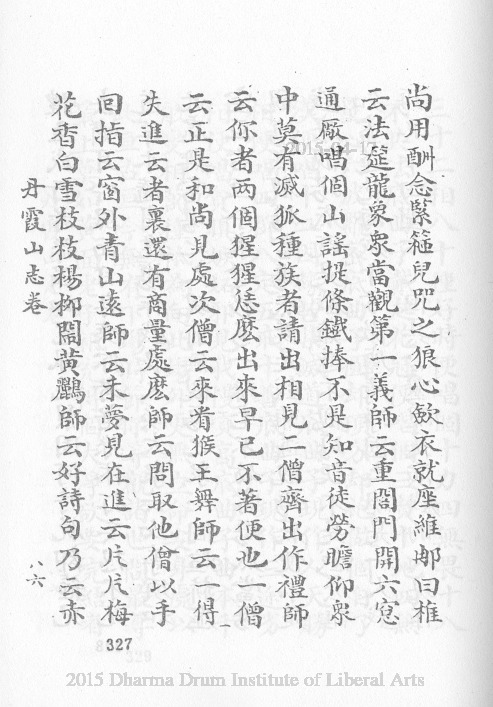 尚用酬念緊箍兒咒之狼心斂衣就座維那白椎
云法筵龍象衆當觀第一義師云重閣門開六窓
通厰唱個山謡提條鐵捧不是知音徒勞瞻仰衆
中莫有滅狐種族者請出相見二僧齊出作禮師
云你者两個猩猩恁麽出來早已不著便也一僧
云正是和尚見處次僧云來看猴王舞師云一得
一失進云者裏還有商量處麽師云問取他僧以手
回指云窗外青山遠師云未夢見在進云片片梅
花香白雪枝枝楊柳閙黃鸝師云好詩句乃云赤
丹霞山志卷
八六
327
2015 Dharma Drum Institute of Liberal Arts